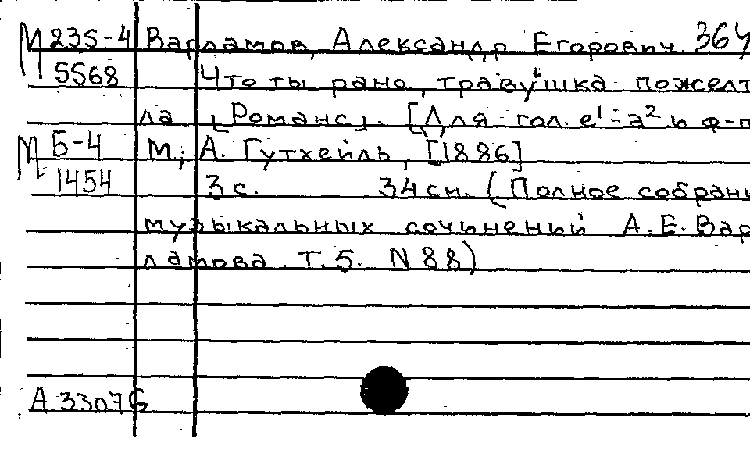 М 235-4 Варламов, Александр Егорович. 364
5568 Что ты рано, травушка пожелт
ла [Романс]. [Для гол. e¹-a² и ф-п
М 5-4 М., А. Гутхейль, [1886]
1454 3 с. 34 см. (Полное собрани
музыкальных сочинений А.Е. Вар
ламова. Т. 5. N 88)
А 33076